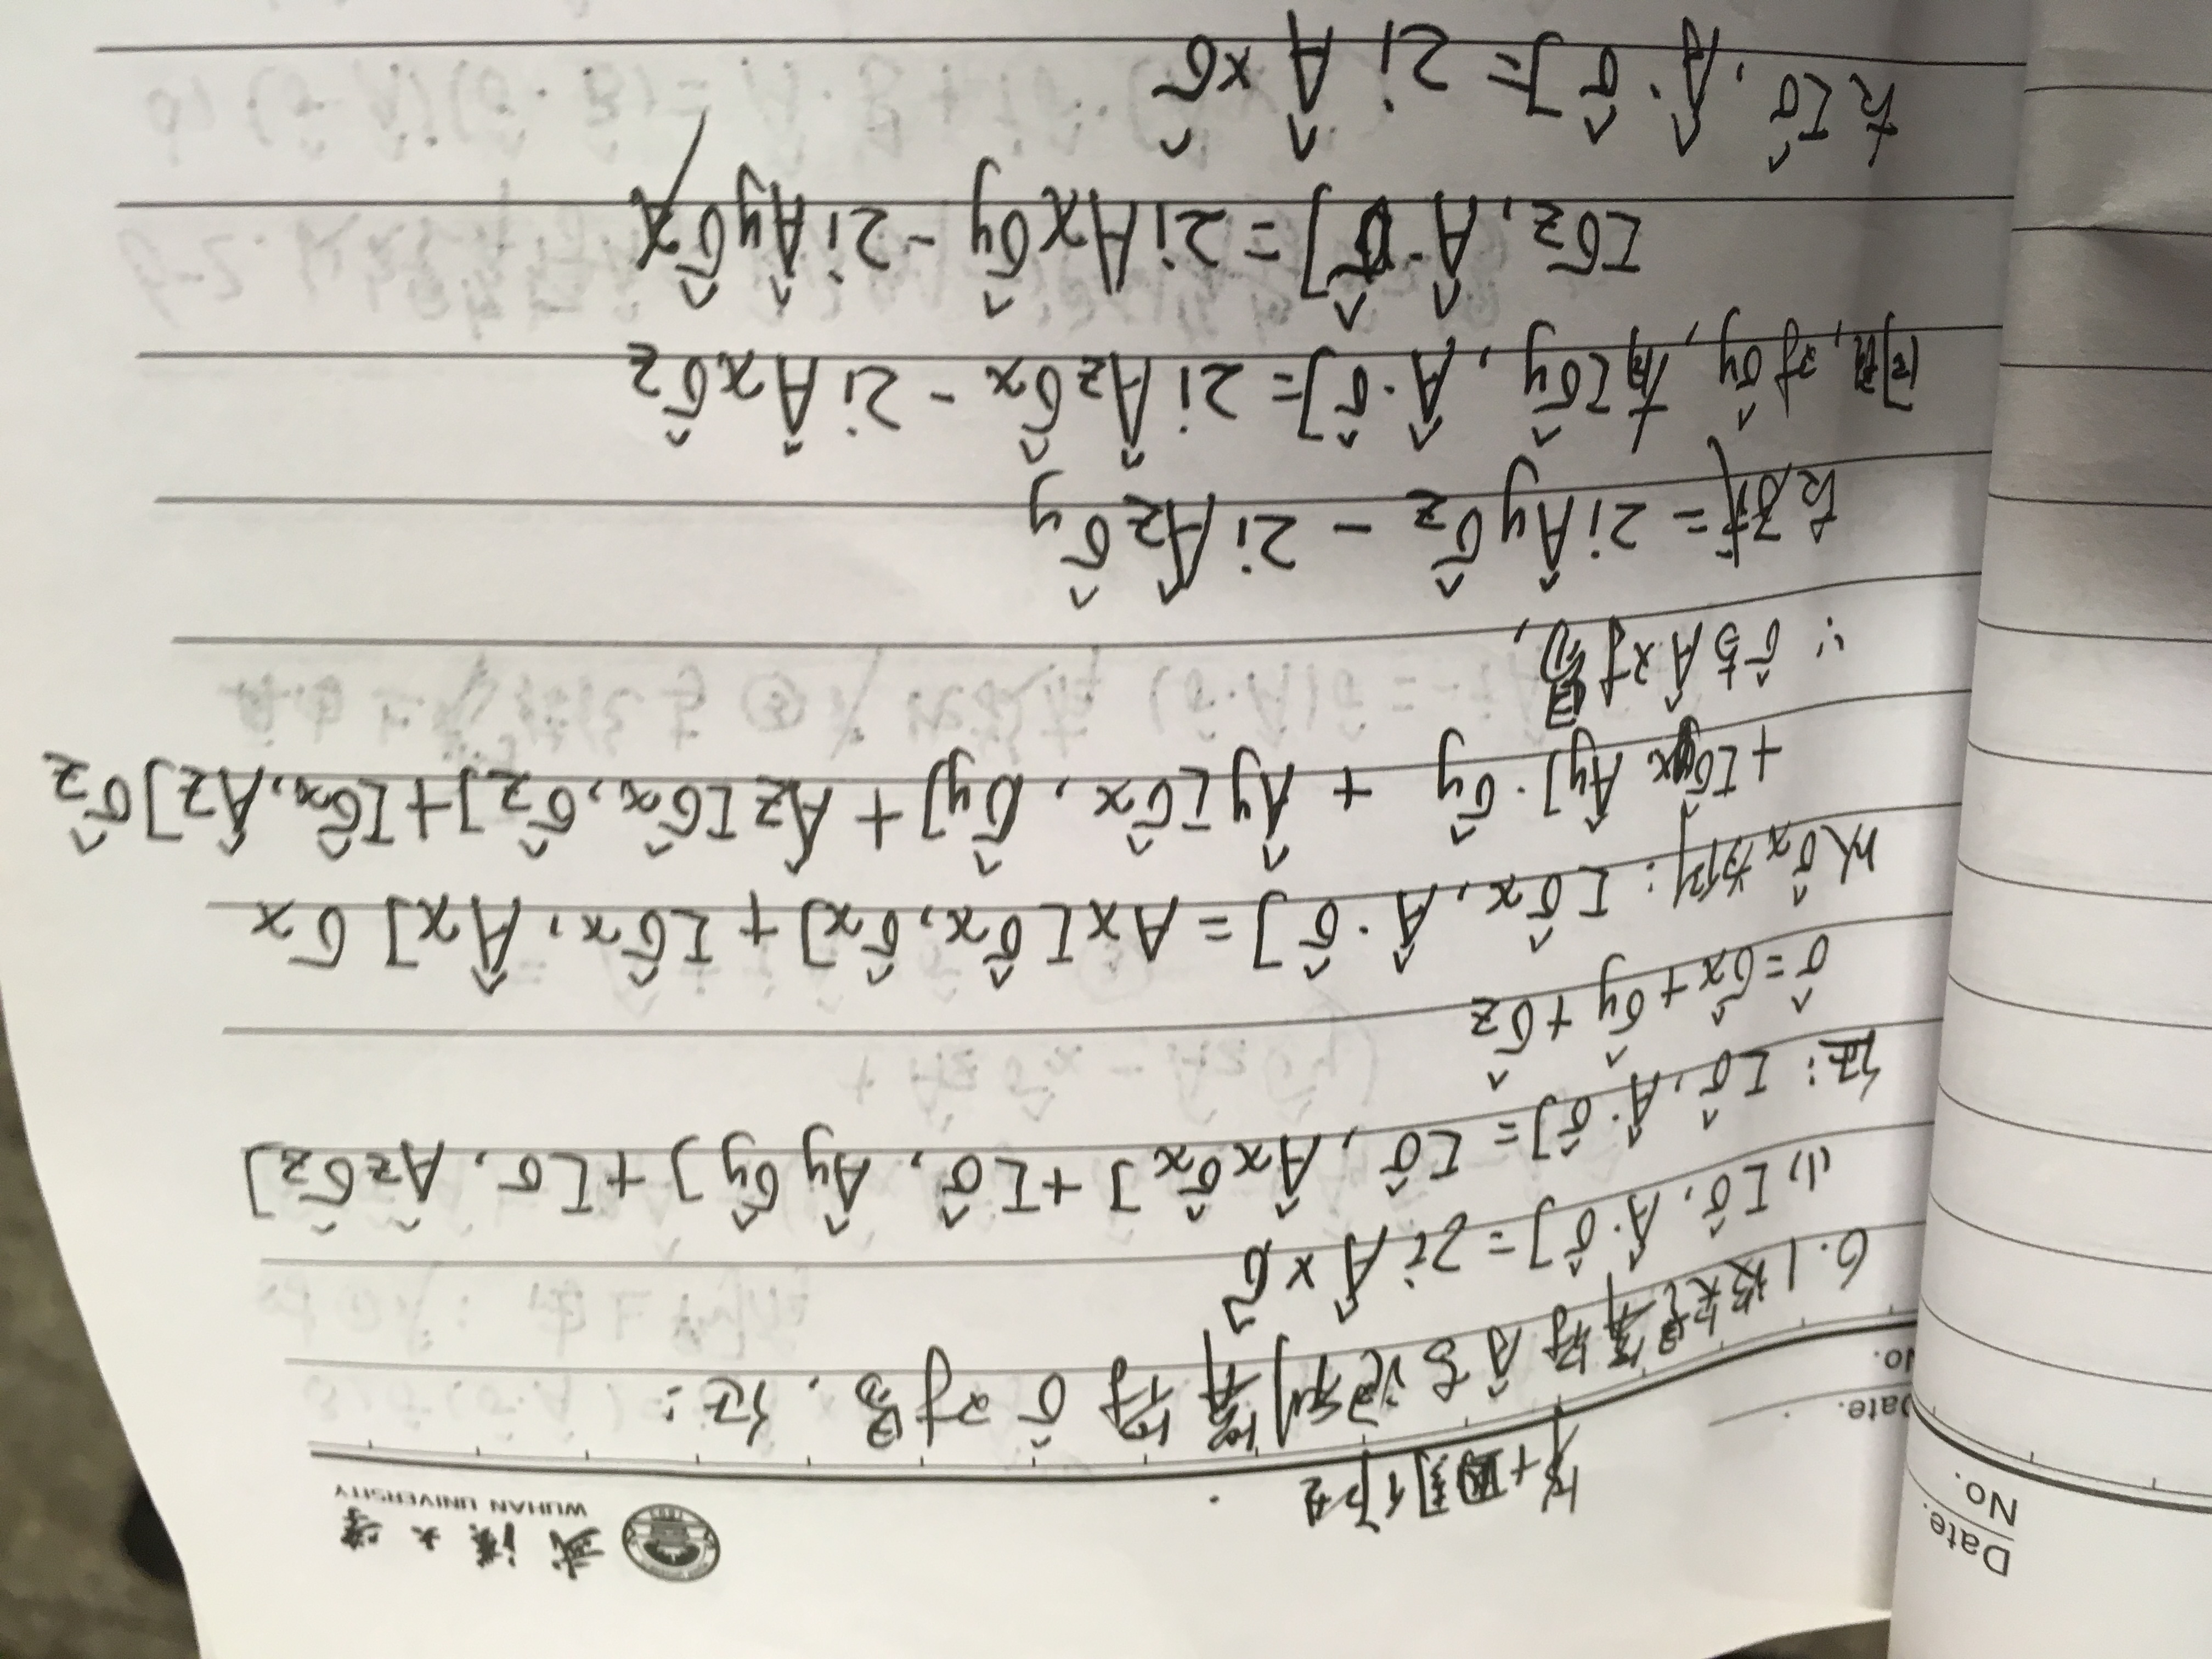 Date.
No.
武漢大學
WUHAN UNIVERSITY
第十四周作业.
Date.
No.
6.1 设矢量算符Â与泡利算符 σ̂ 对易. 证:
(1) [σ̂, Â·σ̂] = 2i Â×σ̂
证: [σ̂, Â·σ̂] = [σ̂, Âxσ̂x] + [σ̂, Âyσ̂y] + [σ, Âzσ̂z]
σ̂ = σ̂x + σ̂y + σ̂z
以σ̂x为例: [σ̂x, Â·σ̂] = Ax[σ̂x, σ̂x] + [σ̂x, Âx] σx
+ [σ̂x, Ây]·σ̂y + Ây[σ̂x, σ̂y] + Âz[σ̂x, σ̂z] + [σ̂x, Âz]σ̂z
∵ σ̂与Â对易,
故 = 2iÂyσ̂z - 2iÂzσ̂y
同理, 对σ̂y, 有[σ̂y, Â·σ̂] = 2iÂzσ̂x - 2iÂxσ̂z
[σz, Â·σ̂] = 2iAxσ̂y - 2iÂyσ̂x
故[σ̂, Â·σ̂] = 2i Â×σ̂